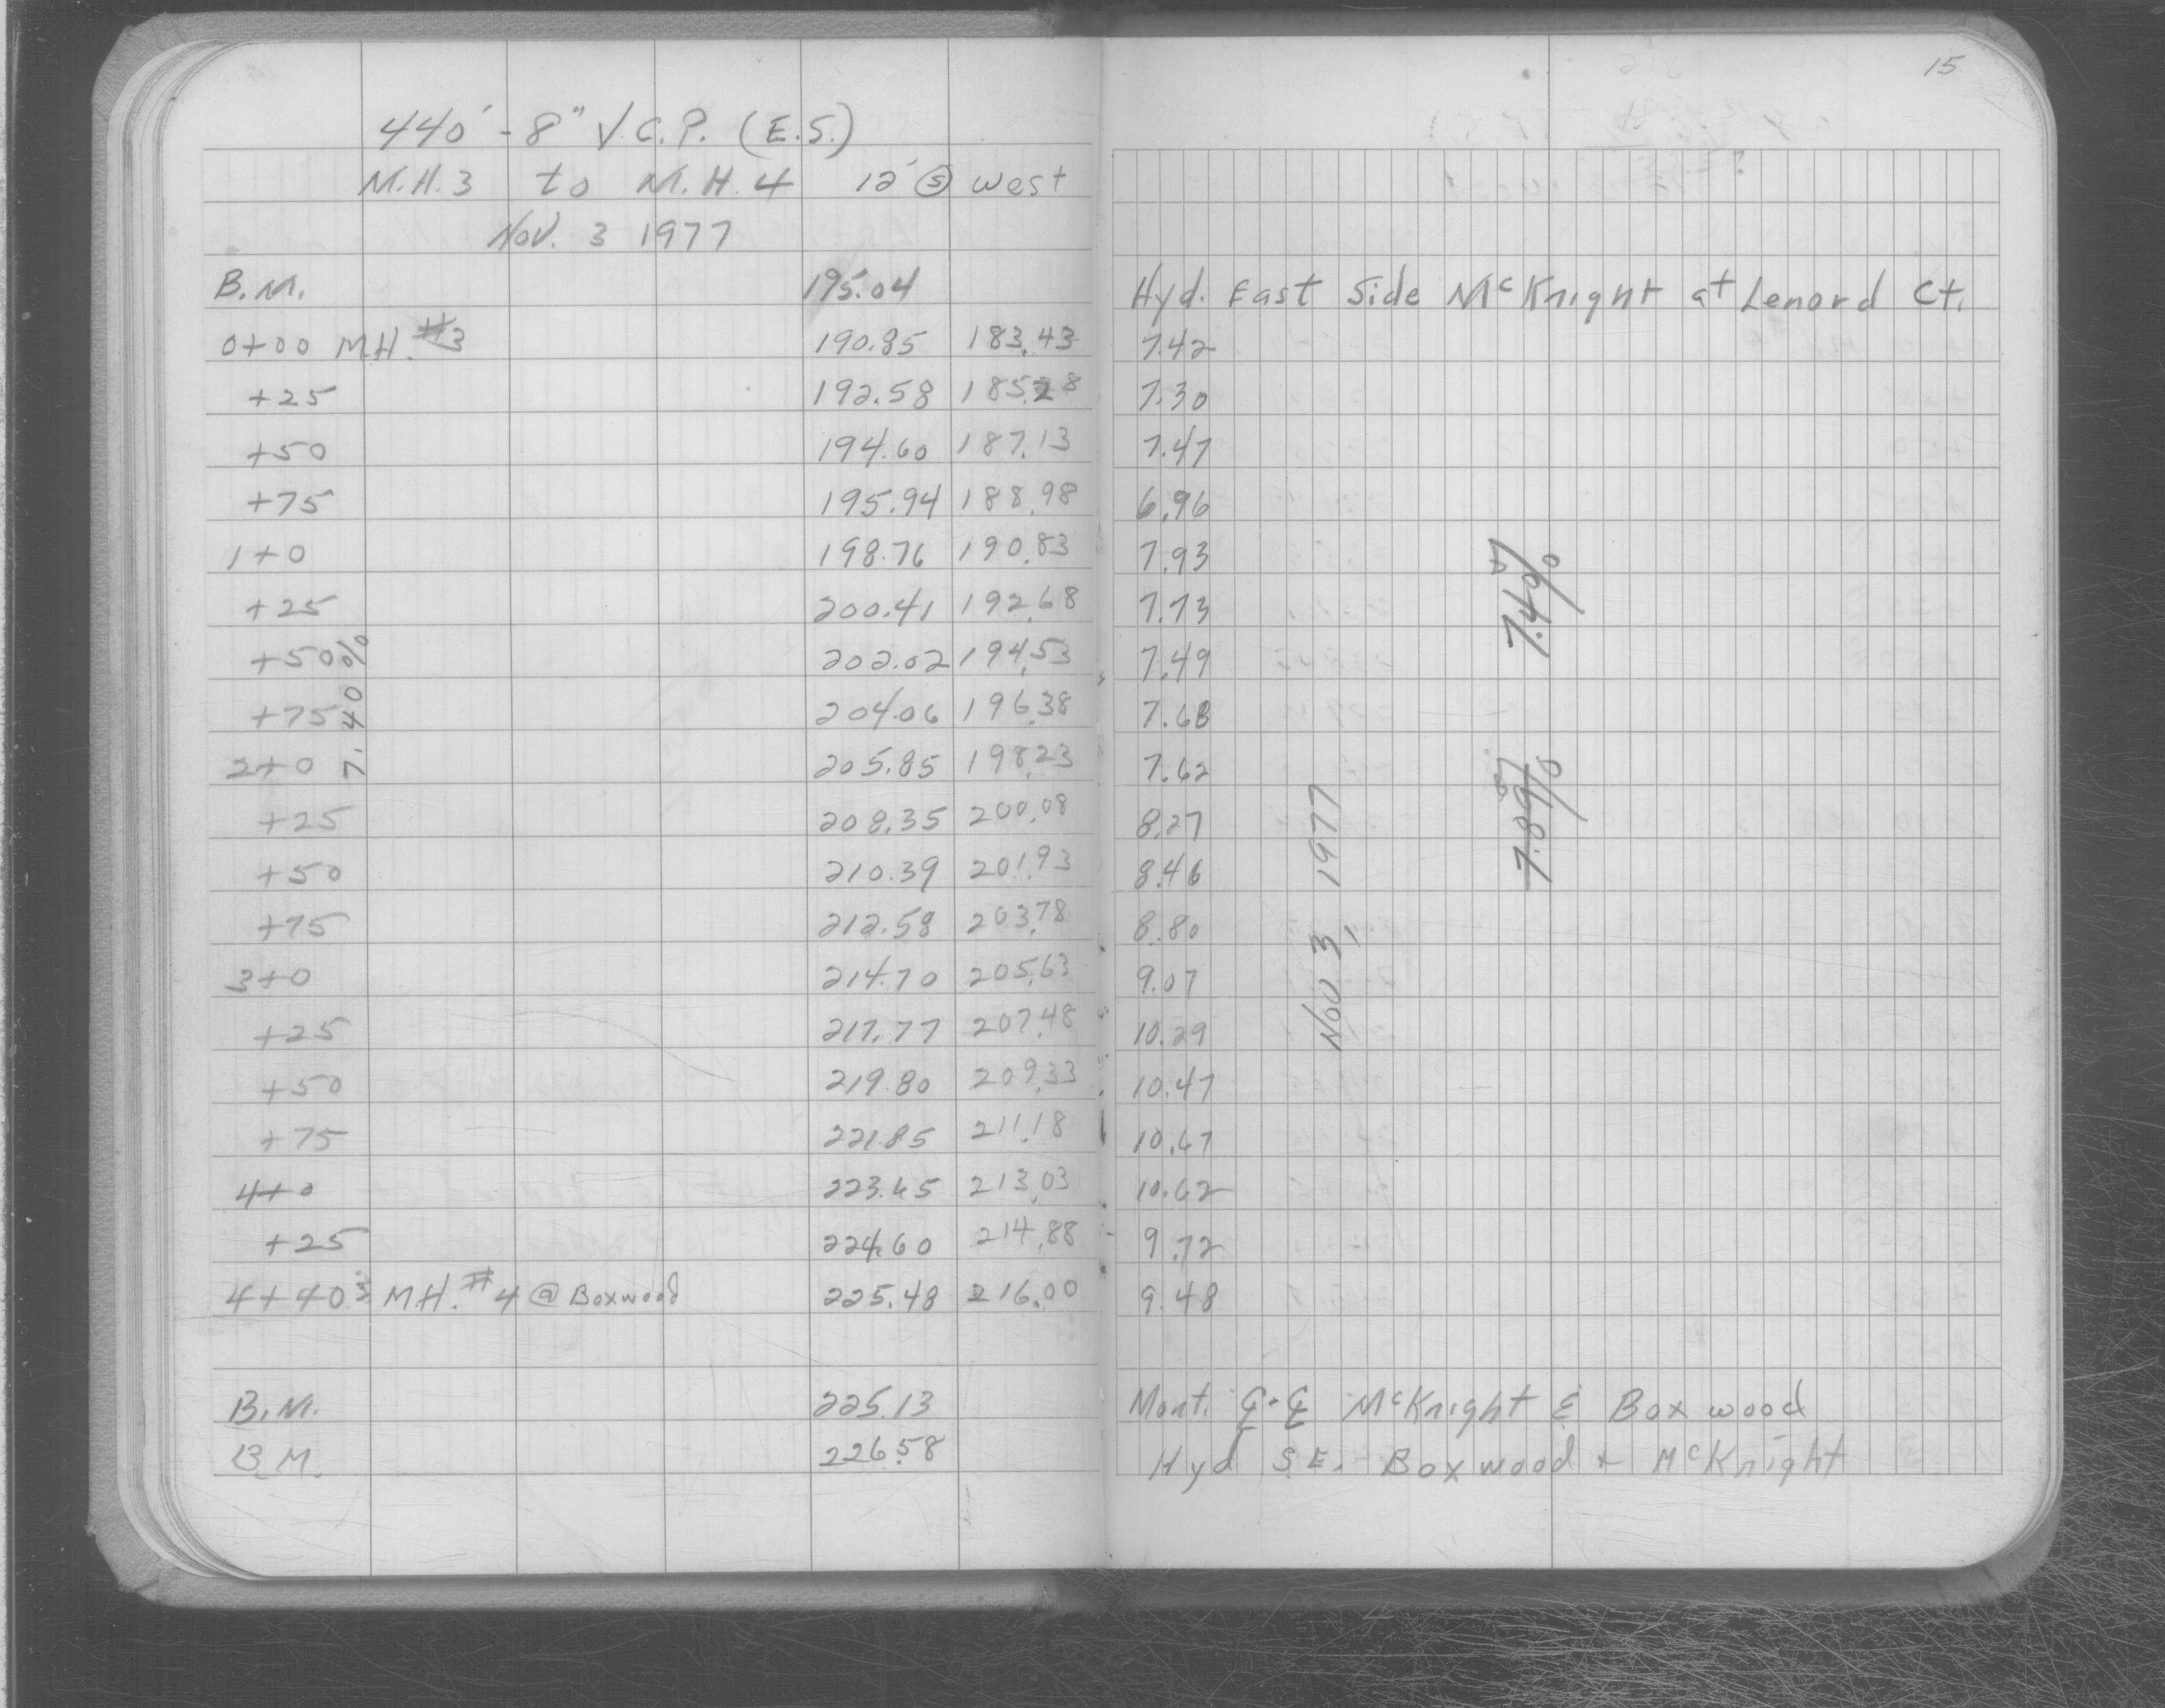 15
440' - 8" V.C.P. (E.S.)
M.H. 3 to M.H. 4 12' Ⓢ West
Nov. 3 1977
B.M. 195.04 Hyd. East Side McKnight at Lenord Ct.
0+00 M.H. #3 190.85 183.43 7.42
+25 192.58 185.28 7.30
+50 194.60 187.13 7.47
+75 195.94 188.98 6.96
1+0 198.76 190.83 7.93
+25 200.41 192.68 7.73
+50 202.02 194.53 7.49
+75 204.06 196.38 7.68
2+0 205.85 198.23 7.62
+25 208.35 200.08 8.27
+50 210.39 201.93 8.46
+75 212.58 203.78 8.80
3+0 214.70 205.63 9.07
+25 217.77 207.48 10.29
+50 219.80 209.33 10.47
+75 221.85 211.18 10.67
4+0 223.65 213.03 10.62
+25 224.60 214.88 9.72
4+40 M.H. #4 @ Boxwood 225.48 216.00 9.48
7.40%
Nov 3, 1977
7.4%
7.89%
B.M. 225.13 Mont. ℄-℄ McKnight & Boxwood
B.M. 226.58 Hyd S.E. Boxwood + McKnight